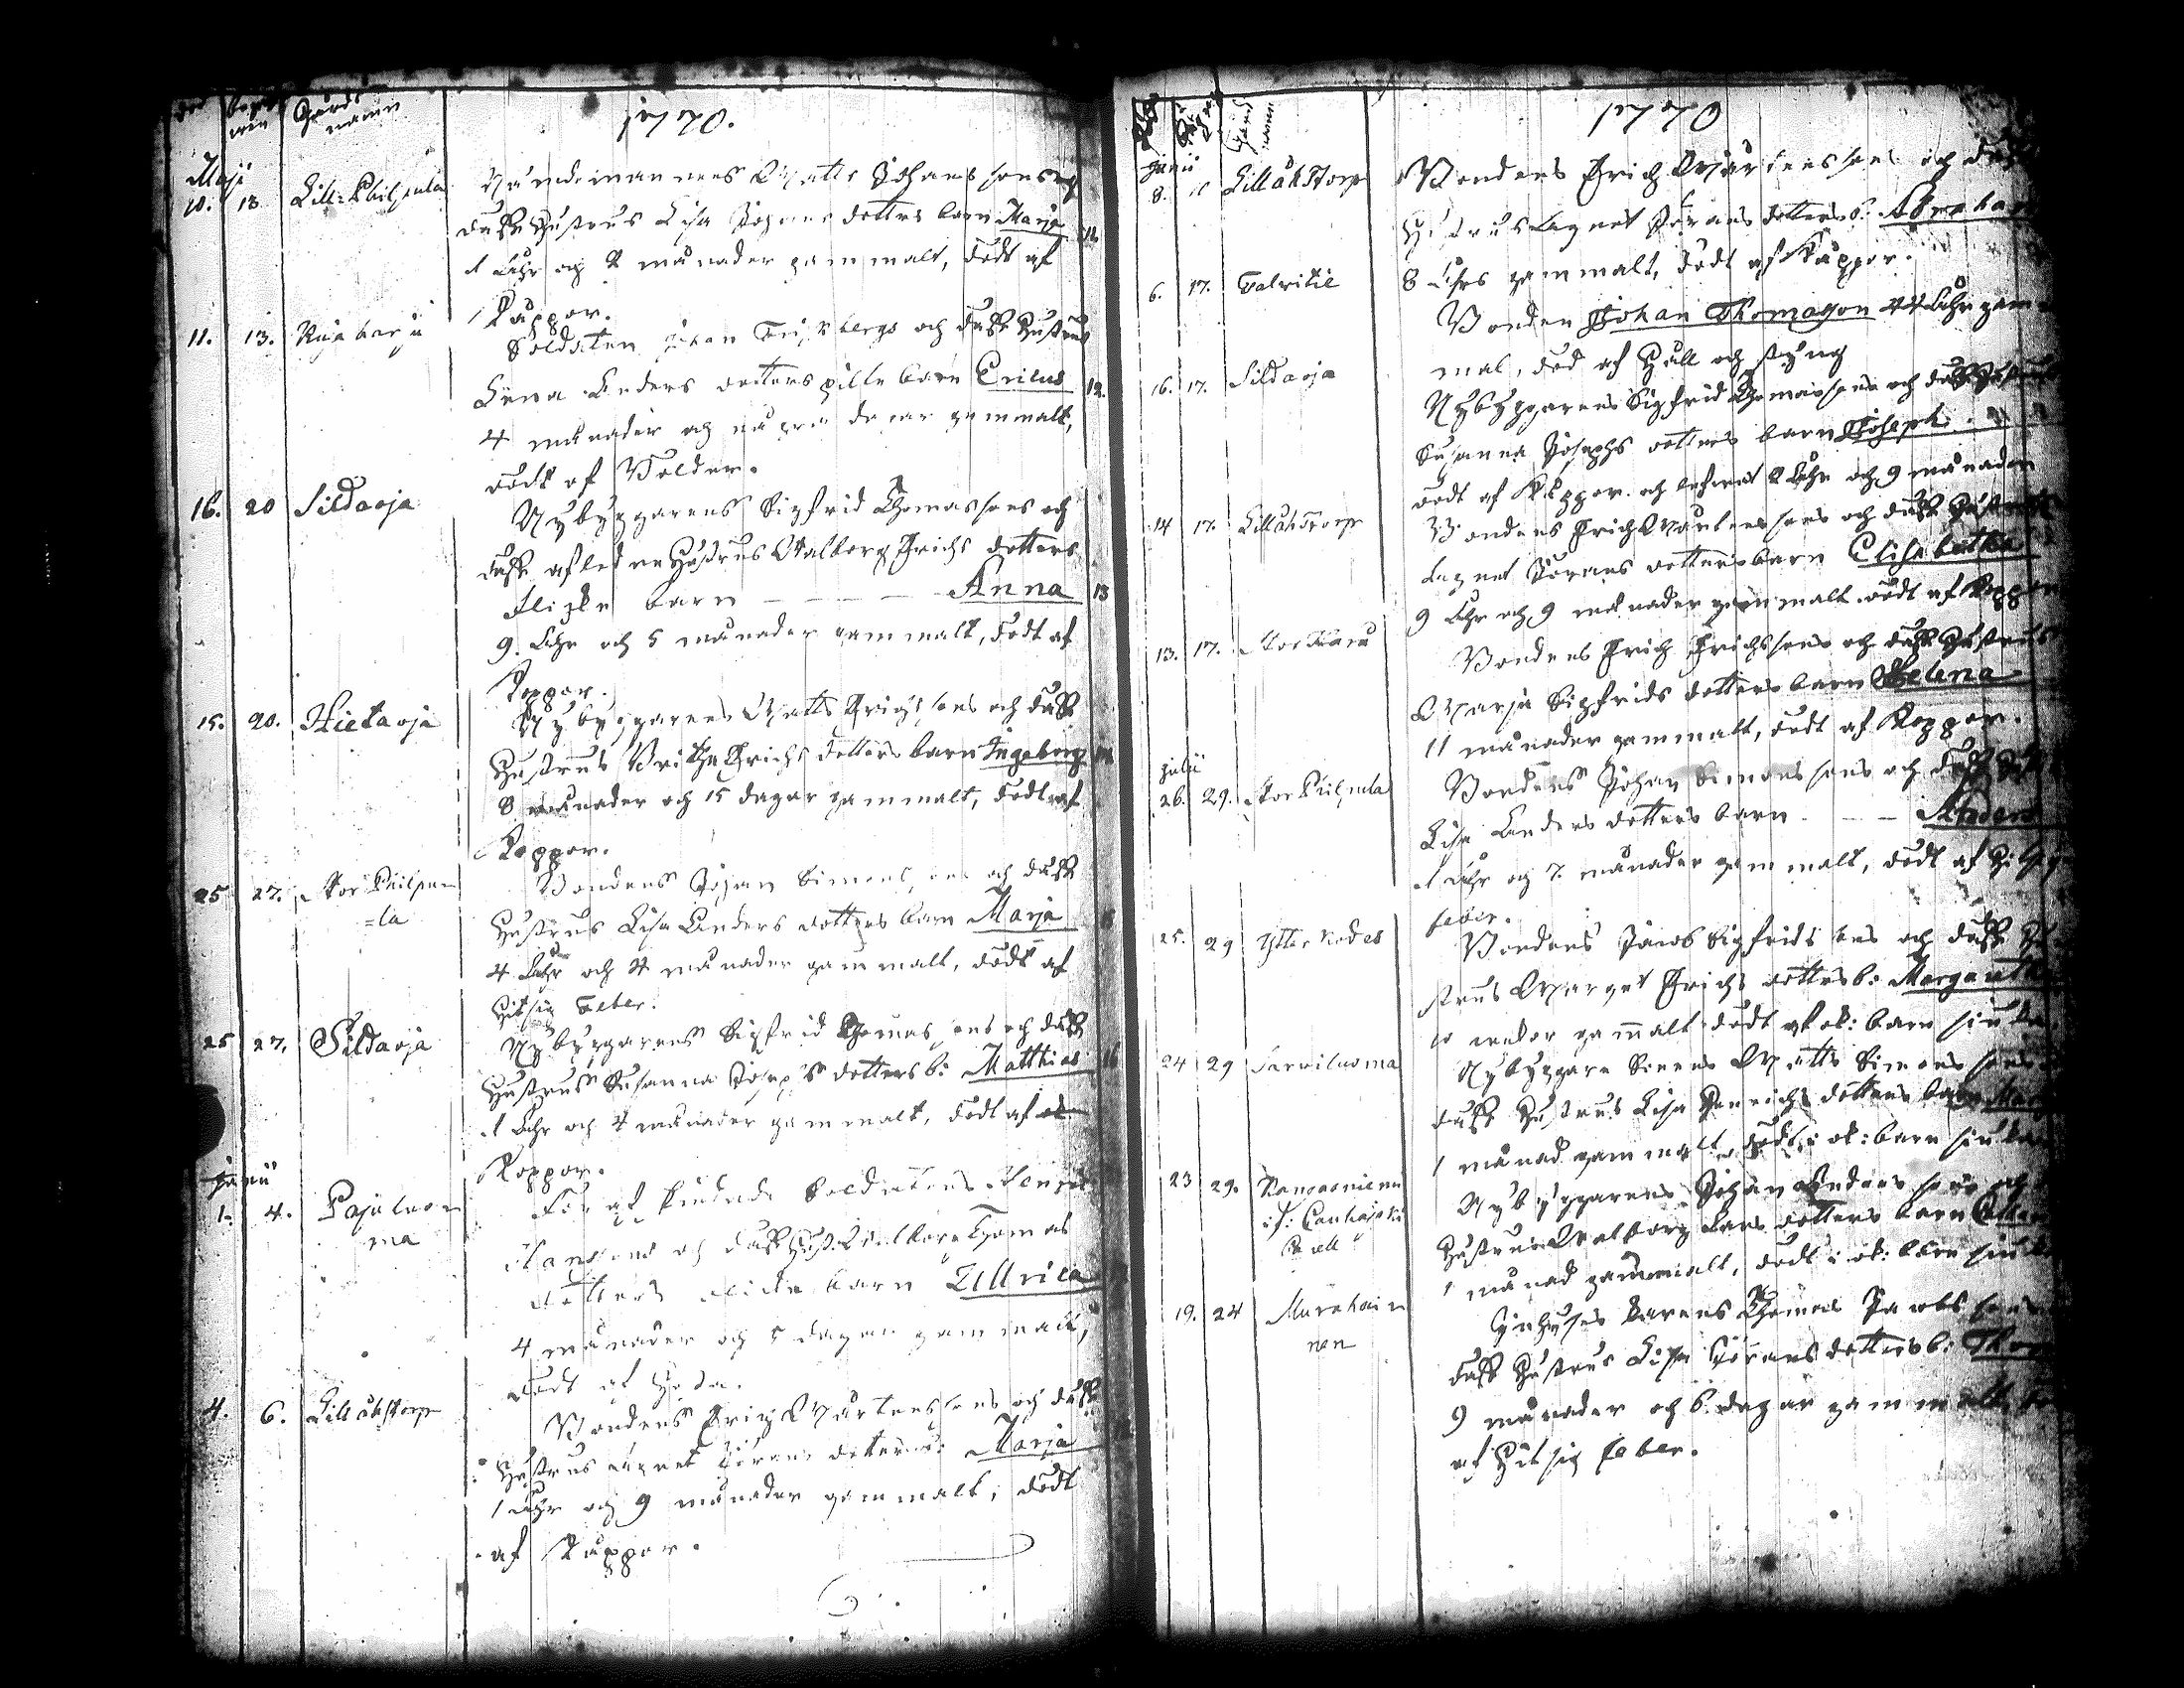 1770.
Gårds
namn
Maji
10. 13 Lill-Philpula Nämdemannens Matts Johanssons och
dess Hustrus Lisa Johans dotters barn Marja 11.
1 Åhr och 2 månader gammalt, dödt af
Kåppor.
11. 13. Soldaten Johan och dess Hustrus
Anders dotters barn Ericus 12.
4 månader och några dagar gammalt,
dödt af Bölder.
16. 20 Sildaoja Nybyggarens Sigfrid Thomassons och
dess afledne Hustrus Walborg Erichs dotters
flicke barn — — — Anna 13
9. Åhr och 5 månader gammalt, dödt af
Koppor.
15. 20. Hietaoja Nybyggarens Matts Erichssons och dess
Hustrus Britha Erichs dotters barn Ingeborg
8 månader och 15 dagar gammalt, dödt af
Koppor.
25 27. Stor Philpu-
=la Bondens Johan Simonssons och dess
Hustrus Lisa Anders dotters barn Marja
4 Åhr och 4 månader gammalt, dödt af
Hitsig Feber.
25 27. Sildaoja Nybyggarens Sigfrid Thomassons och dess
Hustrus Susanna Josephs dotters b: Matthias 16
1 Åhr och 4 månader gammalt, dödt af
Koppor.
Junii
1. 4. Pajuluo-
ma Soldatens
Hanssons och dess Hust. Walborg Thomas
dotters flicke barn Ullrica
4 månader och 5 dagar gammalt,
dödt af
4. 6. Lillåhstorp Bondens Erich Mårtenssons och dess
Hustrus Agnet Jörans dotters b: Marja
1 Åhr och 9 månader gammalt, dödt
af Kåppor.
1770
Junii
8. Lillåhstorp Bondens Erich Mårtenssons och dess
Hustrus Agnet Jörans dotters b: Abraham
8 Åhrs gammalt, dödt af Kåppor.
6. 17. Talvitie Bonden Johan Thomasson 44 Åhr gam-
mal, död af Håll och styng
16. 17. Sildaoja Nybyggarens Sigfrid Thomassons och dess Hustrus
Susanna Josephs dotters barn Joseph
dödt af Koppor och lefwat 2 Åhr och 9 månader
14 17. Lillåhstorp Bondens Erich Mårtenssons och dess Hustrus
Agnet Jörans dotters barn Elisabetha
9 Åhr och 9 månader gammalt dödt af Koppor
13. 17. Stor Bondens Erich Erichssons och dess Hustrus
Marja Sigfrids dotters barn Helena
11 månader gammalt, dödt af Koppor.
Julii
26. 29. Stor Philpula Bondens Johan Simonssons och dess
Lisa Anders dotters barn — — Anders
1 Åhr och 7 månader gammalt, dödt af Hitsig
feber.
25. 29 Ytter Kodes Bondens Jacob Sigfridssons och dess Hu-
strus Margret Erichs dotters b: Margareth
10 wekor gammalt dödt af ok: barn siuka.
24 29 Sarwiluoma Nybyggare Sonens Matts Simonssons
dess Hustrus Lisa Henrichs dotters barn
1 månad gammalt dödt i ok: barn siuka
23 29. Kangasniemi Nybyggarens Johan Anderssons och
Hustrus Walborg Lars dotters barn
1 månad gammalt, dödt i ok: barn siuka
19. 24 Murahai-
nen Inhyses karens Thomas Jacobssons
dess Hustrus Lisa Jörans dotters b: Thom
9 månader och 6 dagar gammalt
af Hitsig feber.